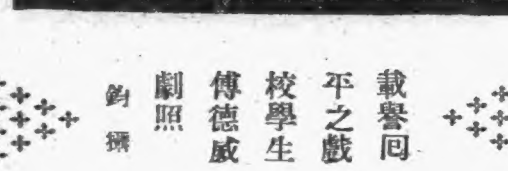 載譽回
平之戲
校學生
傅德威
劇照
鈞攝